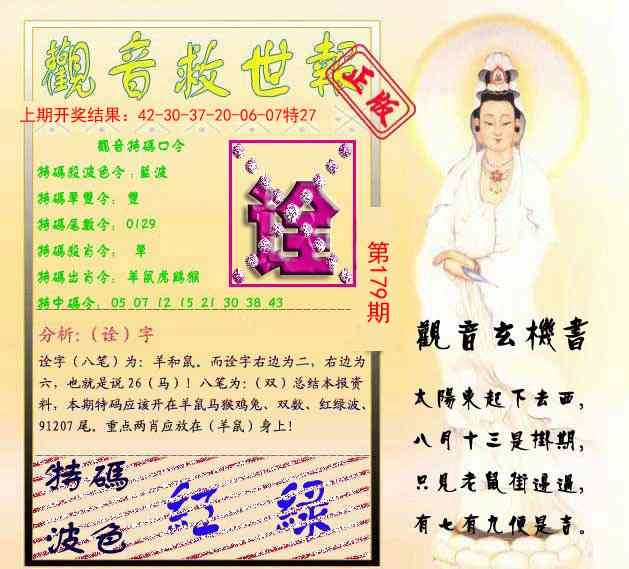 觀音救世報
正版
上期开奖结果：42-30-37-20-06-07特27
觀音特碼口令
特碼殺波色令：藍波
特碼單雙令：雙
特碼尾數令：0129
特碼殺肖令：單
特碼出肖令：羊鼠虎鷄猴
特中碼令：05 07 12 15 21 30 38 43
诠
第179期
分析:（诠）字
诠字（八笔）为：羊和鼠。而诠字右边为二，右边为
六，也就是说26（马）！八笔为：（双）总结本报资
料，本期特码应该开在羊鼠马猴鸡兔、双数、红绿波、
91207尾。重点两肖应放在（羊鼠）身上！
特碼
波色
紅 綠
觀音玄機書
太陽東起下去西，
八月十三是掛期，
只見老鼠街邊過，
有七有九便是吉。